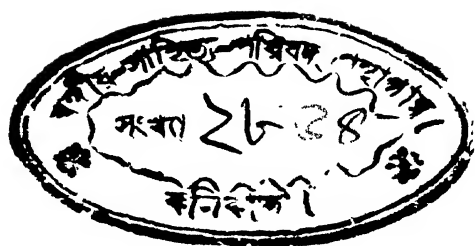 বঙ্গীয়-সাহিত্য-পরিষদ্ গ্রন্থাগার
সংখ্যা ২৮৪৪
কলিকাতা।